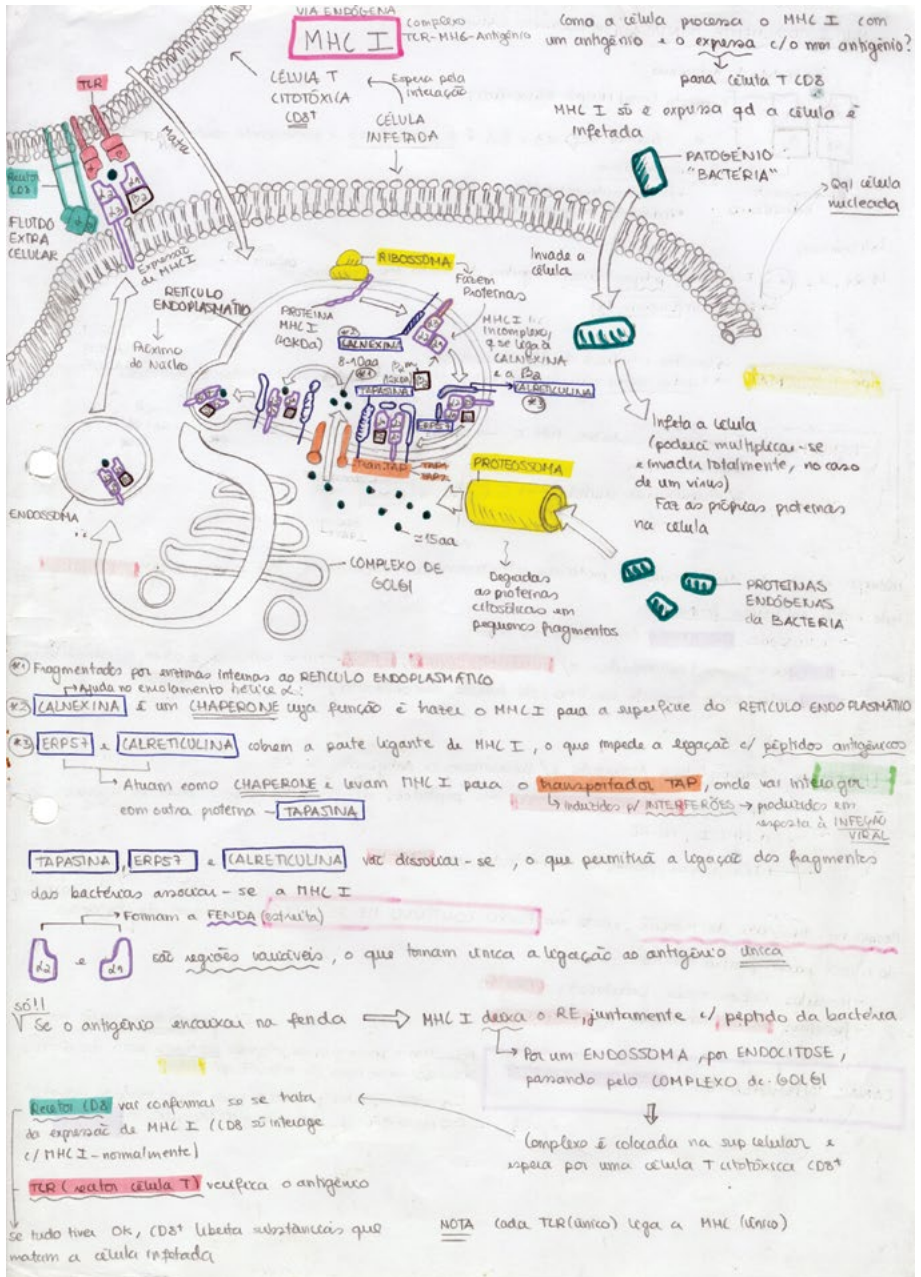 VIA ENDÓGENA
MHC I
complexo
TCR-MHG-Antigénio
Como a célula processa o MHC I com
um antigénio e o expressa c/o mm antigénio?
para célula T CD8
MHC I só é expressa qd a célula é
infetada
CÉLULA T
CITOTÓXICA
CD8+
Espera pela
interação
CÉLULA
INFETADA
TLR
Mata
Recetor
CD8
α2
α1
α3
B2
FLUÍDO
EXTRA
CELULAR
PATOGÉNIO
"BACTÉRIA"
Qql célula
nucleada
Invade a
célula
Expressão
de MHC I
RETÍCULO
ENDOPLASMÁTICO
Próximo
do Núcleo
RIBOSSOMA
Fazem
Proteínas
PROTEÍNA
MHC I
(45KDa)
#2
CALNEXINA
MHC I
Incomplexo,
q se liga à
CALNEXINA
e a B2
8-10aa
#1
B2m
12KDa
B2
TAPASINA
ERP57
CALRETICULINA
#3
Tran.TAP
TAP1
TAP2
PROTEOSSOMA
≃15aa
ENDOSSOMA
COMPLEXO DE
GOLGI
Degradas
as proteínas
citosólicas em
pequenos fragmentos
Infeta a célula
(poderá multiplicar-se
e invadir totalmente, no caso
de um vírus)
Faz as próprias proteínas
na célula
PROTEÍNAS
ENDÓGENAS
da BACTÉRIA
#1 Fragmentados por enzimas internas ao RETÍCULO ENDOPLASMÁTICO
Ajuda no enrolamento hélice α
#2 CALNEXINA É um CHAPERONE cuja função é trazer o MHC I para a superfície do RETÍCULO ENDOPLASMÁTICO
#3 ERP57 e CALRETICULINA cobrem a parte ligante de MHC I, o que impede a ligação c/ péptidos antigénicos
Atuam como CHAPERONE e levam MHC I para o transportador TAP, onde vai interagir
com outra proteína - TAPASINA
Induzidos p/ INTERFERÕES → produzidos em
resposta à INFEÇÃO
VIRAL
TAPASINA, ERP57 e CALRETICULINA vão dissociar-se, o que permitirá a ligação dos fragmentos
das bactérias associar-se a MHC I
Formam a FENDA (estreita)
α2 e α1 são regiões variáveis, o que tornam única a ligação ao antigénio única
só!!
Se o antigénio encaixar na fenda ⇒ MHC I deixa o RE, juntamente c/ péptido da bactéria
Por um ENDOSSOMA, por ENDOCITOSE,
passando pelo COMPLEXO de GOLGI
Complexo é colocada na sup celular e
espera por uma célula T citotóxica CD8+
Recetor CD8 vai confirmar se se trata
da expressão de MHC I (CD8 só interage
c/ MHC I - normalmente)
TLR (recetor célula T) verifica o antigénio
se tudo tiver OK, CD8+ liberta substâncias que
matam a célula infetada
NOTA Cada TLR (único) liga a MHC (único)